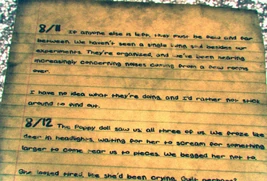 8/11 If anyone else is left, they must be few and far
between. We haven't seen a single living soul besides our
experiments. They're organized, and we've been hearing
increasingly concerning noises coming from a few rooms
over.
I have no idea what they're doing, and I'd rather not stick
around to find out.
8/12 The Poppy doll saw us, all three of us. We froze like
deer in headlights, waiting for her to scream for something
larger to come tear us to pieces. We begged her not to.
She looked tired, like she'd been crying. Guilt perhaps?